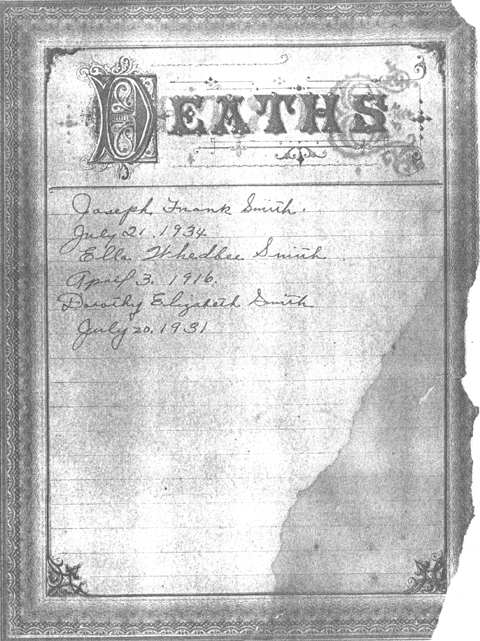 DEATHS
Joseph Frank Smith.
July 21, 1934
Ella Whedbee Smith
April 3. 1916.
Dorothy Elizabeth Smith
July 20, 1931